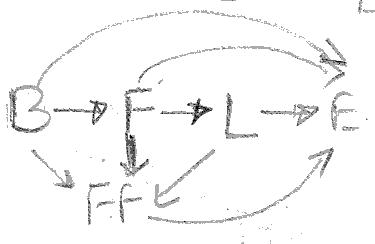 B F L E
FF